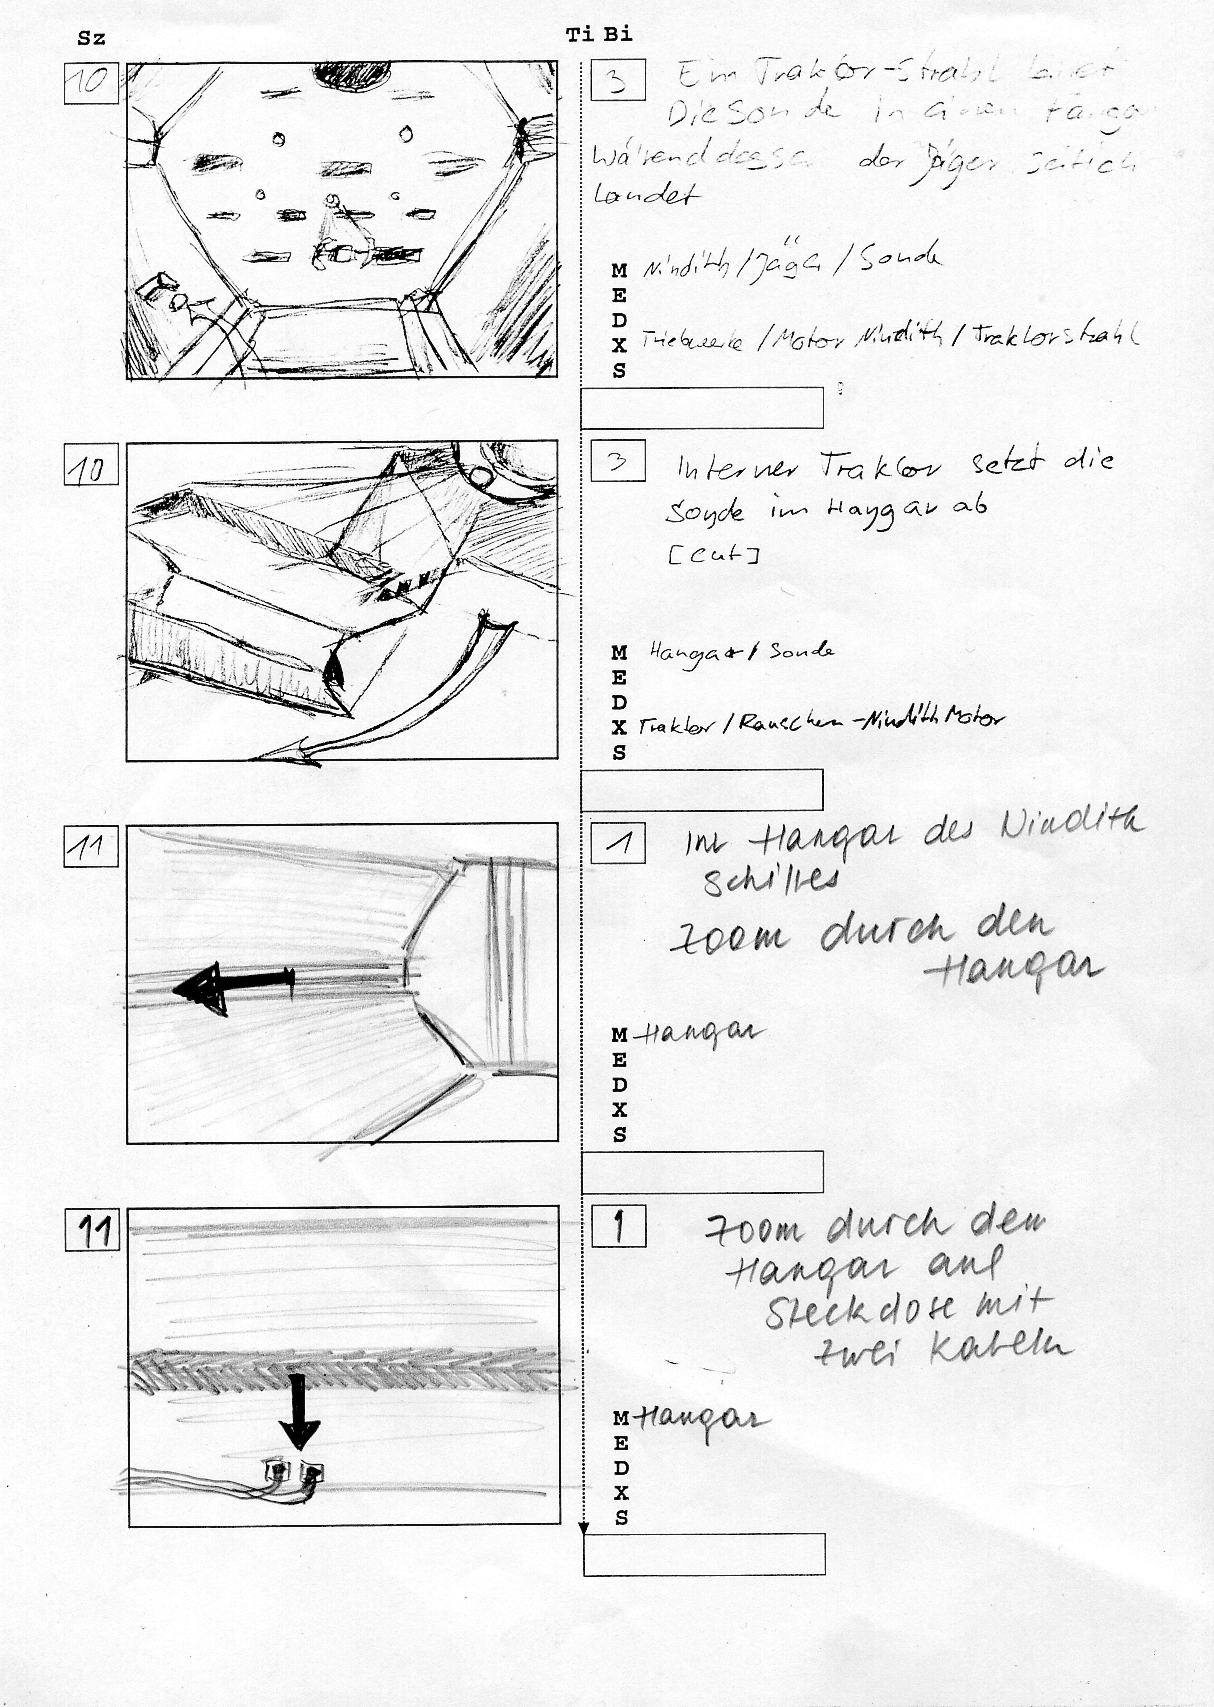 Sz
Ti Bi
10
3
Ein Traktor-Strahl
Die Sonde in einen Hangar
währenddessen der Jäger seitlich
landet
M Nindith / Jäger / Sonde
E
D
X Triebwerke / Motor Nindith / Traktorstrahl
S
10
3
Interner Traktor setzt die
Sonde im Hangar ab
[cut]
M Hangar / Sonde
E
D
X Traktor / Rauschen - Nindith Motor
S
11
1
Im Hangar des Nindith
Schiffes
Zoom durch den
Hangar
M Hangar
E
D
X
S
11
1
Zoom durch den
Hangar auf
Steckdose mit
zwei Kabeln
M Hangar
E
D
X
S